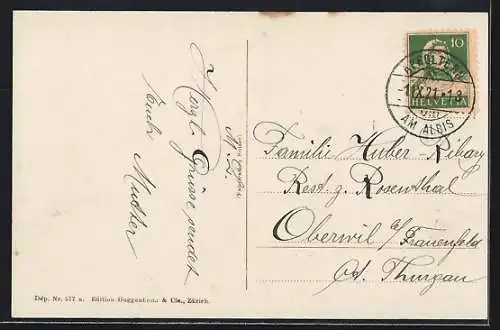 Herzl. Grüsse sendet
Euch Mutter
Familie Huber-Ribary
Rest. z. Rosenthal
Oberwil b/ Frauenfeld
Ct. Thurgau
10
HELVETIA
AM ALBIS
Dép. Nr. 577 a. Edition Guggenheim & Cie., Zürich.